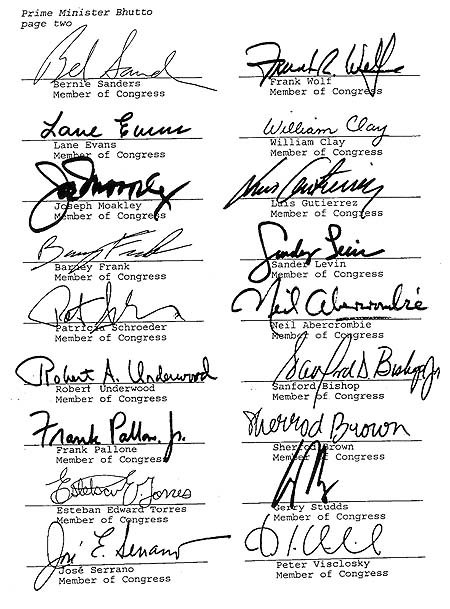 Prime Minister Bhutto
page two
Bernie Sanders
Member of Congress
Lane Evans
Lane Evans
Member of Congress
Joe Moakley
Joseph Moakley
Member of Congress
Barney Frank
Barney Frank
Member of Congress
Patricia Schroeder
Member of Congress
Robert A. Underwood
Robert Underwood
Member of Congress
Frank Pallone, Jr.
Frank Pallone
Member of Congress
Esteban Edward Torres
Member of Congress
José E. Serrano
José Serrano
Member of Congress
Frank R. Wolf
Frank Wolf
Member of Congress
William Clay
William Clay
Member of Congress
Luis Gutierrez
Luis Gutierrez
Member of Congress
Sander Levin
Sander Levin
Member of Congress
Neil Abercrombie
Neil Abercrombie
Member of Congress
Sanford D. Bishop, Jr.
Sanford Bishop
Member of Congress
Sherrod Brown
Sherrod Brown
Member of Congress
Gerry Studds
Member of Congress
Peter Visclosky
Member of Congress